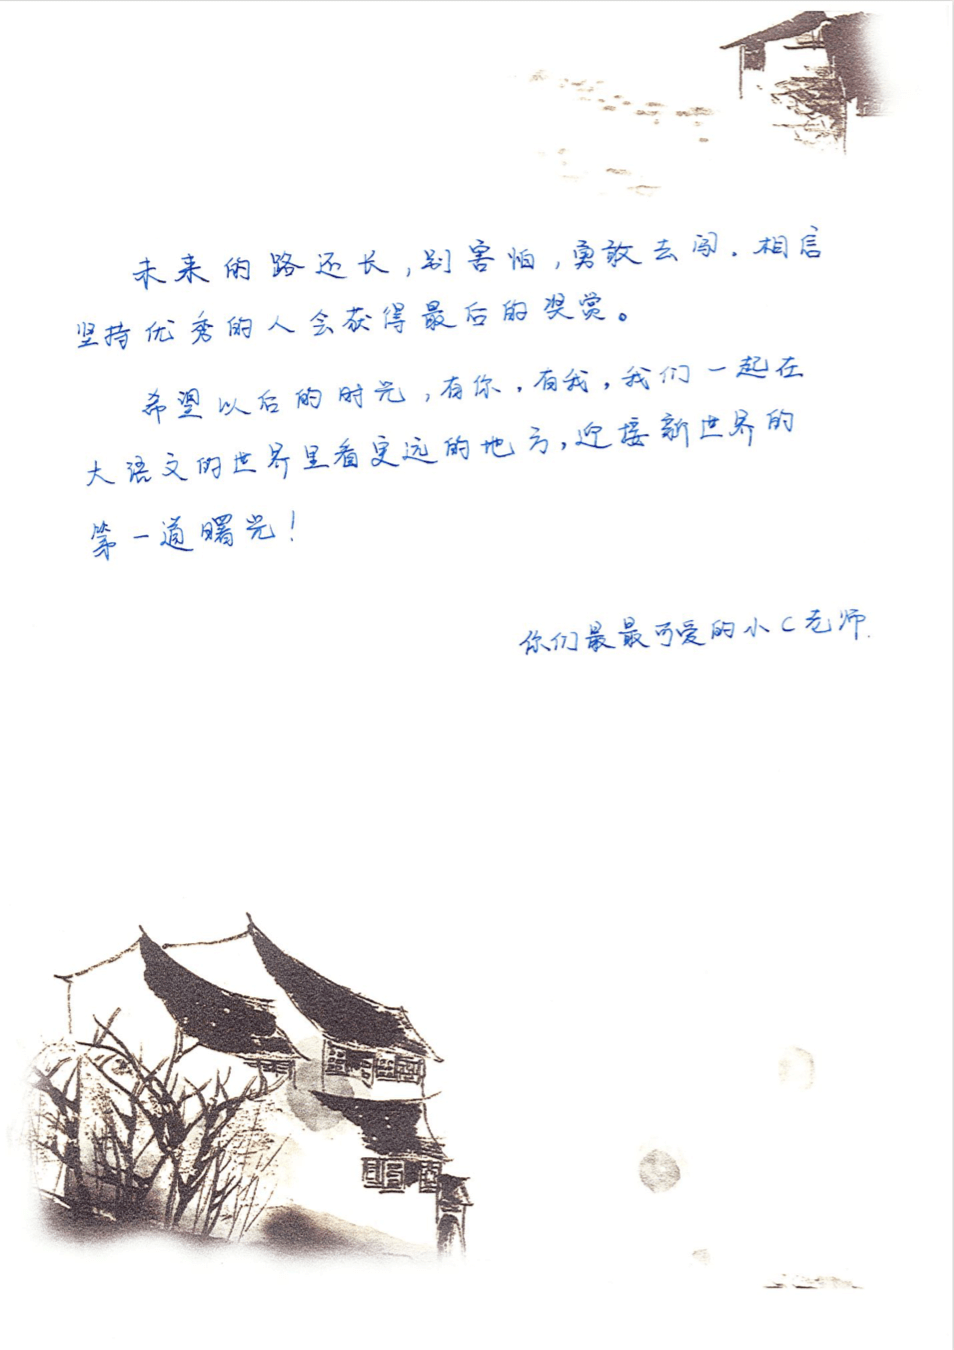 未来的路还长,别害怕,勇敢去闯.相信
坚持优秀的人会获得最后的奖赏。
希望以后的时光,有你,有我,我们一起在
大语文的世界里看更远的地方,迎接新世界的
第一道曙光!
你们最最可爱的小C老师.